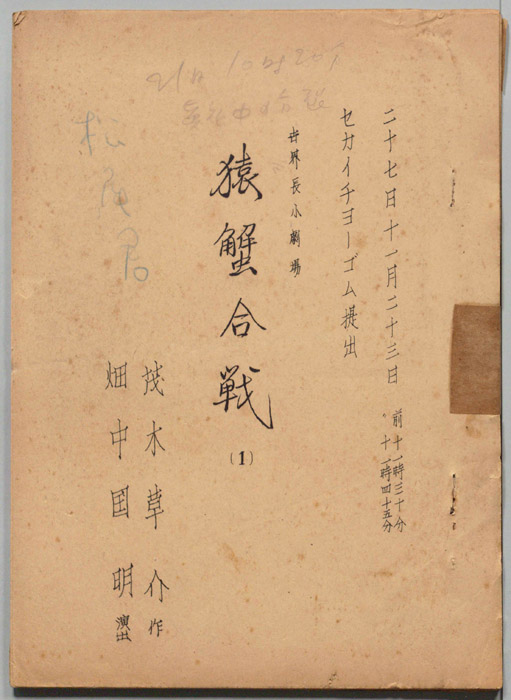 二十七日十一月二十三日
前十一時三十分
十一時四十五分
セカイチヨーゴム提出
世界長小劇場
猿蟹合戦
(1)
茂木草介作
畑中国明演出
松尾君